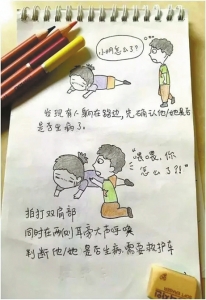 小明怎么了?
发现有人躺在路边,先确认他/她是
否是生病了。
"喂喂,你
怎么了?!"
拍打双肩部
同时在两侧耳旁大声呼唤
判断他/她是否生病,需要救护车